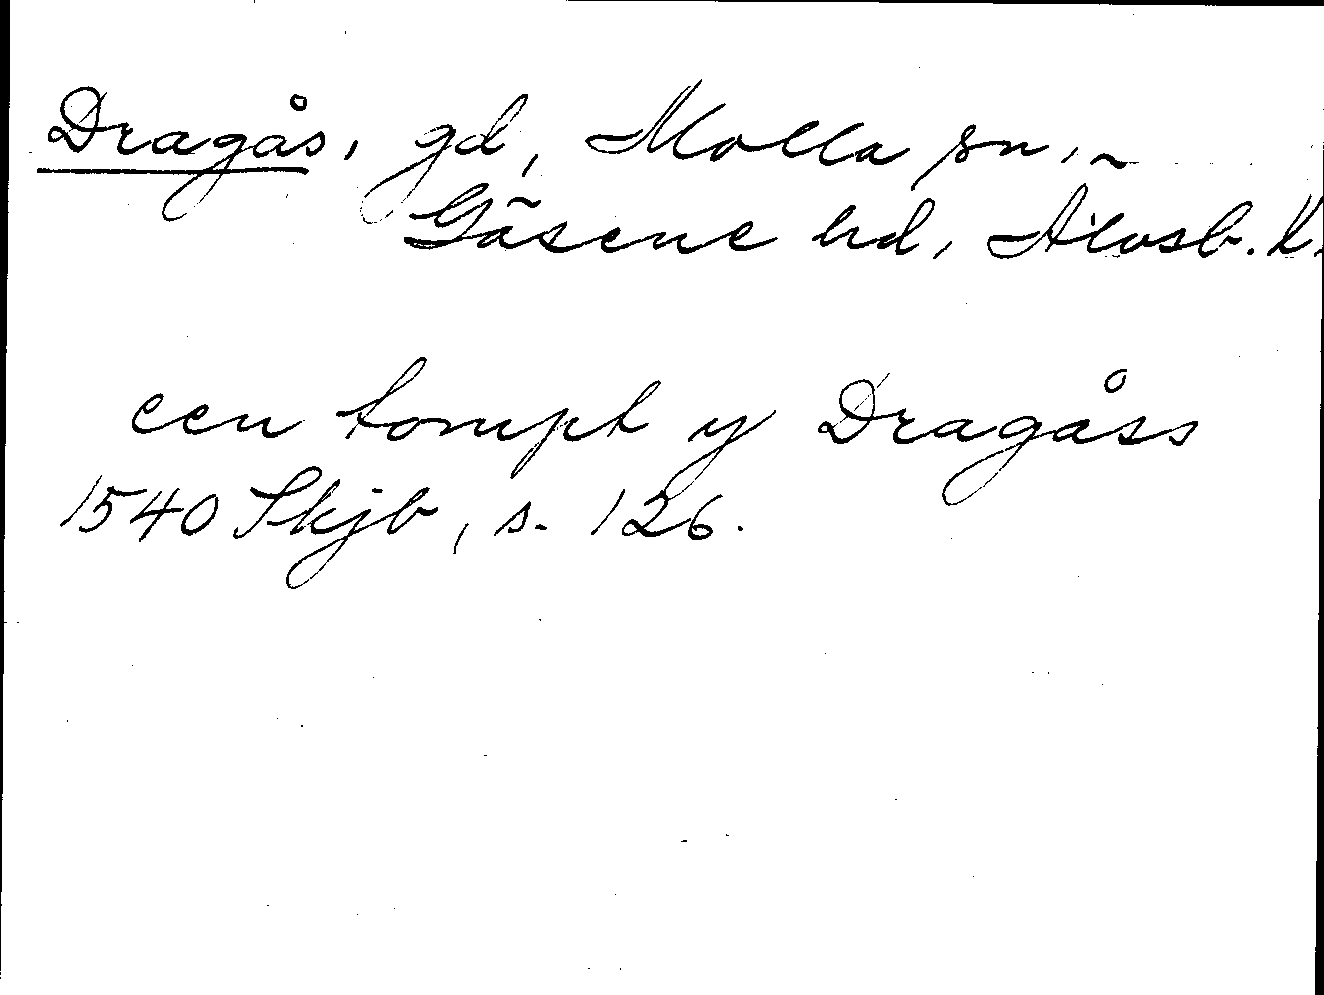 Dragås, gd, Molla sn,
Gäsene hd, Älvsb. l.
een tompt y Dragåss
1540 Skjb, s. 126.